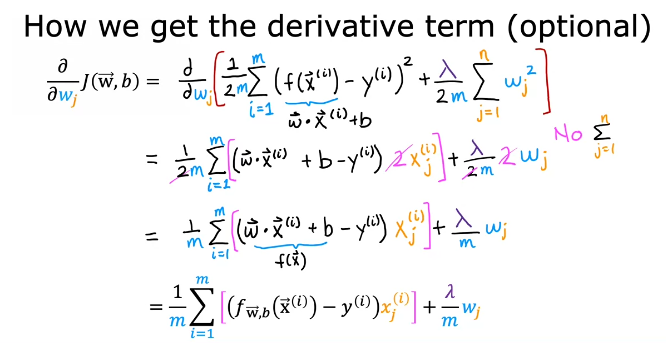 How we get the derivative term (optional)
∂/∂w_j J(w⃗, b) = d/dw_j [ 1/2m Σ_{i=1}^{m} (f(x⃗^(i)) - y^(i))² + λ/2m Σ_{j=1}^{n} w_j² ]
w⃗·x⃗^(i)+b
No Σ_{j=1}^{n}
= 1/2m Σ_{i=1}^{m} [(w⃗·x⃗^(i) + b - y^(i)) 2x_j^(i)] + λ/2m 2 w_j
= 1/m Σ_{i=1}^{m} [(w⃗·x⃗^(i) + b - y^(i)) x_j^(i)] + λ/m w_j
f(x⃗)
= 1/m Σ_{i=1}^{m} [(f_{w⃗,b}(x⃗^(i)) - y^(i)) x_j^(i)] + λ/m w_j